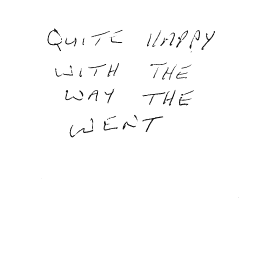 QUITE HAPPY
WITH THE
WAY THE
WENT